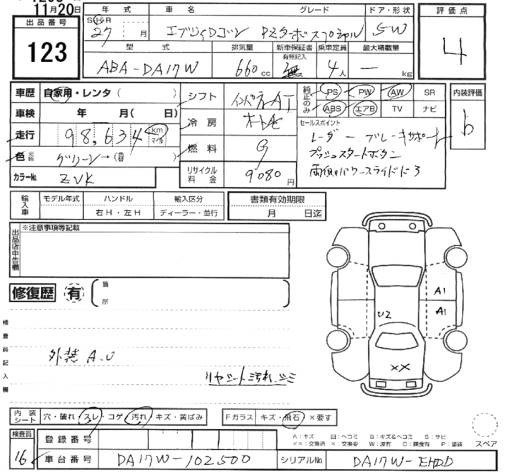 11月20日
出品番号
123
年式 車名 グレード ドア・形状
S・H・R 27 月 エブリィワゴン PZターボスペシャル 5W
型式 排気量 新車保証書 乗車定員 最大積載量
有照記入
ABA-DA17W 660cc 無 4人 kg
評価点
4
車歴 自家用・レンタ( )
車検 年 月( 日)
走行 98,634 km マイル
色 グリーン
カラーNo. ZVK
シフト インパネAT
冷房 オートAC
燃料 G
リサイクル料金 9080円
純正のみ PS PW AW SR
ABS エアB TV ナビ
セールスポイント
レーダーブレーキサポート
プッシュスタートボタン
両側パワースライドドア
内装評価
b
輸入車 モデル年式 ハンドル 輸入区分
年 右H・左H ディーラー・並行
書類有効期限
月 日迄
出品店申告欄
※注意事項等記載
修復歴 有
箇所
検査員記入欄
外装 A.U
リヤシート汚れ シミ
A1
A1
U2
XX
内装シート 穴・破れ スレ・コゲ 汚れ・キズ・黄ばみ
Fガラス キズ・飛石 ×要す
スペア
検査員
16
登録番号
車台番号 DA17W-102500
シリアルNo. DA17W-EHDD